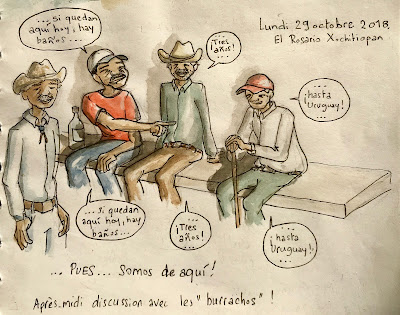 ... si quedan
aquí hoy, hay
baños...
¡Tres
años!
Lundi 29 octobre 2018,
El Rosario Xochitiopan
¡hasta
Uruguay!
... si quedan
aquí hoy, hay
baños...
¡Tres
años!
¡hasta
Uruguay!
... PUES... SOMOS de aquí!
Après-midi discussion avec les "burrachos" !